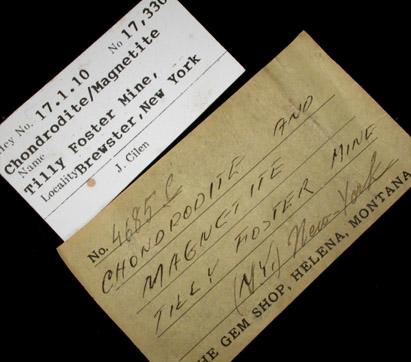 ey No. 17.1.10 No 17,330
Chondrodite/Magnetite
Name
Tilly Foster Mine,
Locality Brewster, New York
J. Cilen
No. 4685 C
CHONDRODITE AND
MAGNETITE
TILLY FOSTER MINE
(N.Y.) New York
HE GEM SHOP, HELENA, MONTANA